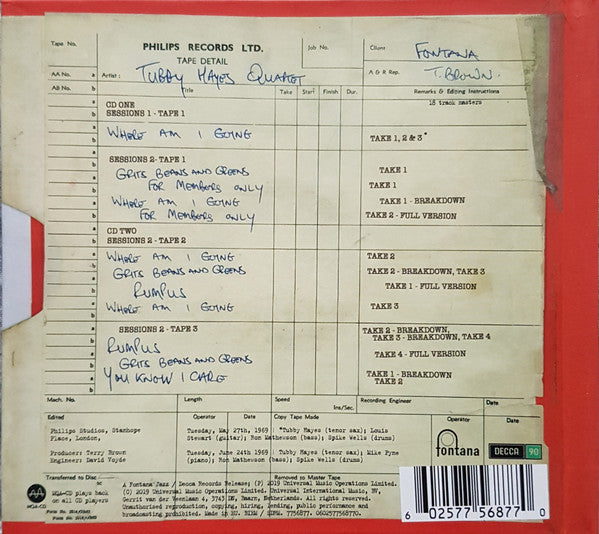 Tape No.
PHILIPS RECORDS LTD.
Job No.
Client
FONTANA
TAPE DETAIL
AA No. a
Artist: TUBBY HAYES QUARTET
A & R Rep.
T. BROWN.
AB No. b
Title Take Start Finish Dur. Remarks & Editing Instructions
18 track masters
CD ONE
SESSIONS 1 - TAPE 1
WHERE AM I GOING TAKE 1, 2 & 3*
SESSIONS 2 - TAPE 1
GRITS BEANS AND GREENS TAKE 1
FOR MEMBERS ONLY TAKE 1
WHERE AM I GOING TAKE 1 - BREAKDOWN
FOR MEMBERS ONLY TAKE 2 - FULL VERSION
CD TWO
SESSIONS 2 - TAPE 2
WHERE AM I GOING TAKE 2
GRITS BEANS AND GREENS TAKE 2 - BREAKDOWN, TAKE 3
RUMPUS TAKE 1 - FULL VERSION
WHERE AM I GOING TAKE 3
SESSIONS 2 - TAPE 3 TAKE 2 - BREAKDOWN,
RUMPUS TAKE 3 - BREAKDOWN, TAKE 4
GRITS BEANS AND GREENS TAKE 4 - FULL VERSION
YOU KNOW I CARE TAKE 1 - BREAKDOWN
TAKE 2
Mach. No. Length Speed Recording Engineer Date
Ins/Sec.
Edited Operator Date Copy Tape Made Operator Date
Philips Studios, Stanhope
Place, London,
Tuesday, May 27th, 1969 *Tubby Hayes (tenor sax); Louis
Stewart (guitar); Ron Mathewson (bass); Spike Wells (drums)
Producer: Terry Brown
Engineer: David Voyde
Tuesday, June 24th, 1969 Tubby Hayes (tenor sax); Mike Pyne
(piano); Ron Mathewson (bass); Spike Wells (drums)
fontana
DECCA 90
Transferred to Disc Removed to Master Tape
MQA-CD
MQA-CD plays back
on all CD players
A Fontana Jazz / Decca Records Release; (P) 2019 Universal Music Operations Limited.
(C) 2019 Universal Music Operations Limited. Universal International Music, BV,
Gerrit van der Veenlaan 4, 3743 DN, Baarn, Netherlands. All rights reserved.
Unauthorised reproduction, copying, hiring, lending, public performance and
broadcasting prohibited. Made in EU. BIEM / MCPS. 7756877. 0602577568770
6 02577 56877 0